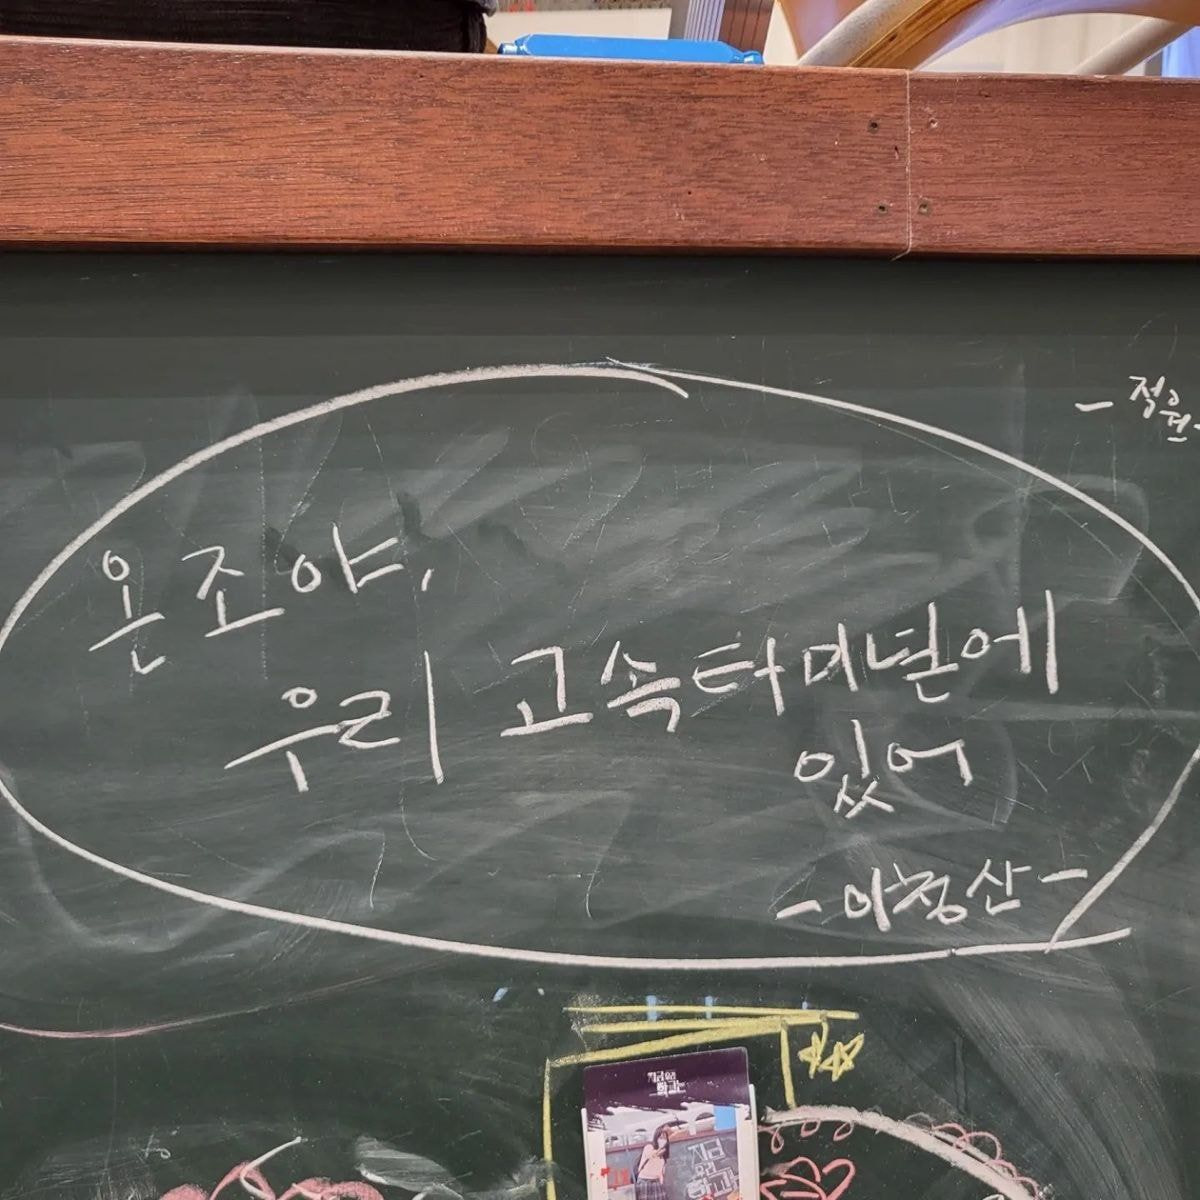 온조야,
우리 고속터미널에
있어
- 이청산 -
지금 우리
학교는
지금
우리
학교